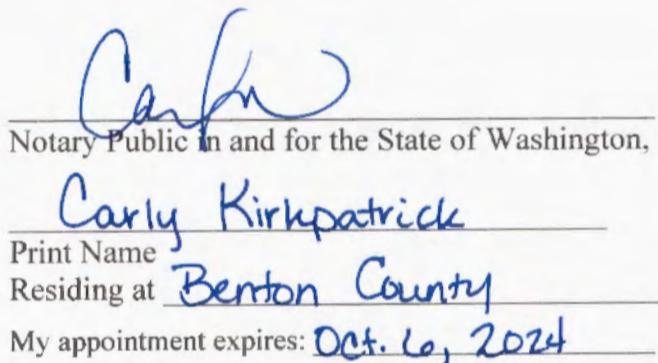 Notary Public in and for the State of Washington,
Carly Kirkpatrick
Print Name
Residing at Benton County
My appointment expires: Oct. 6, 2024